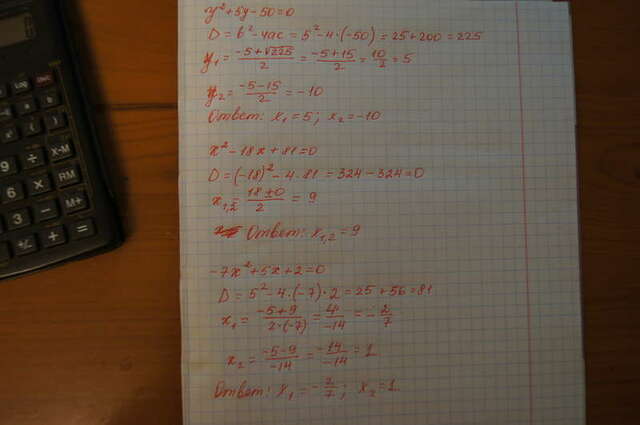 y²+5y-50=0
D = b²-4ac = 5²-4·(-50) = 25+200 = 225
y₁ = (-5+√225)/2 = (-5+15)/2 = 10/2 = 5
y₂ = (-5-15)/2 = -10
Ответ: x₁=5; x₂=-10
x²-18x+81=0
D = (-18)²-4·81 = 324-324=0
x₁,₂ = (18±0)/2 = 9
Ответ: x₁,₂=9
-7x²+5x+2=0
D = 5²-4·(-7)·2 = 25+56=81
x₁ = (-5+9)/(2·(-7)) = 4/(-14) = -2/7
x₂ = (-5-9)/(-14) = (-14)/(-14) = 1
Ответ: x₁=-2/7; x₂=1
9 ÷ X-M
6 × RM
3 - M+
+/- + =